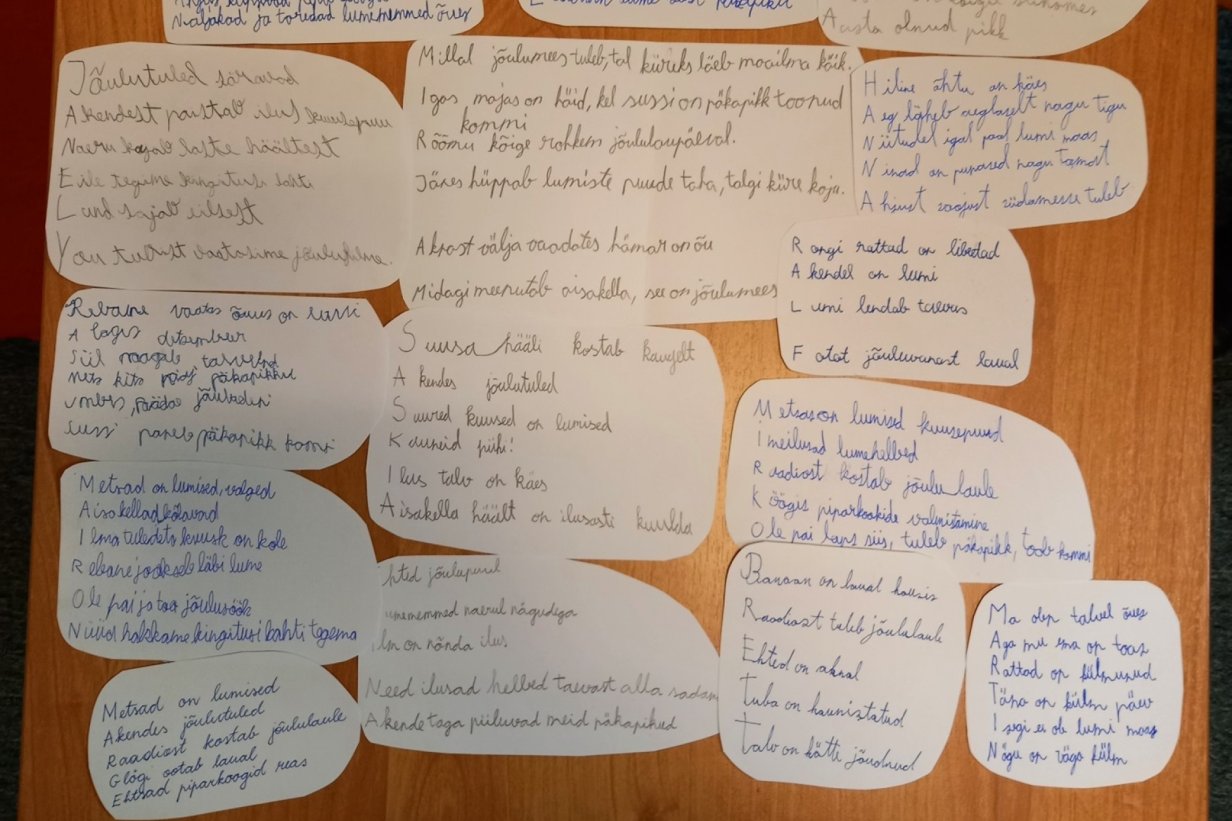 Näljakad ja toredad lumememmed õues
Aasta olnud pikk
Jõulutuled säravad
Akendest paistab ilus kuusepuu
Naeru kajab laste häältest
Eile tegime kingitusi lahti
Land sajab eilsest
You tulist vastasime jõulufilme.
Millal jõulumees tuleb, tal kiireks läeb maailma kõik.
Igas majas on häid, kel sussi on päkapikk toonud
kommi
Rõõmu kõige rohkem jõululaupäeval.
Jänes hüppab lumiste puude taha, talgi kiire koju.
Aknast välja vaadates hämar on õu
Midagi meenutab aisakella, see on jõulumees
Hiline õhtu on käes
Aeg läheb aeglaselt nagu tigu
Niitudel igal pool lumi maas
Ninad on punased nagu tomat
Ahjust soojust südamesse tuleb
Rongi rattad on libedad
Akendel on lumi
Lumi lendab taevas
Fotot jõuluvanast laual
Rebane vaatas õues on sussi
Alagis detsember
Siil magab talveund
päkapikku
sussi paneb päkapikk kommi
Suusa hääli kostab kaugelt
Akendes jõulutuled
Suured kuused on lumised
Kauneid pühi!
Ilus talv on käes
Aisakella häält on ilusasti kuulda
Metsas on lumised kuusepuud
Imeilusad lumehelbed
Raadiost kostab jõulu laule
Köögis piparkookide valmistamine
Ole pai laps siis, tuleb päkapikk, toob kommi
Metsad on lumised, valged
Aisakellad kõlavad
Ilma tuledeta kuusk on kole
Rebane jookseb läbi lume
Ole pai ja too jõulusöök
Nüüd hakkame kingitusi lahti tegema
hted jõulupuul
umememmed naerul nägudega
ilm on nõnda ilus
Need ilusad helbed taevast alla sadam
Akende taga piiluvad meid päkapikud
Banaan on laual kausis
Raadiost tuleb jõululaule
Ehted on aknal
Tuba on kaunistatud
Talv on kätte jõudnud
Ma olen talvel õues
Aga mu ema on toas
Rattad on külmunud
Täna on külm päev
Isegi ei ole lumi maas
Nägu on väga külm
Metsad on lumised
Akendes jõulutuled
Raadiost kostab jõululaule
Glögi ootab laual
Ehtsad piparkoogid reas